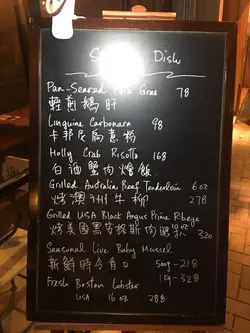 Dish
Pan-Seared Gras 78
輕煎鵝肝
Linguine Carbonara 98
卡邦尼扁意粉
Holly Crab Risotto 168
白酒蟹肉燴飯
Grilled Australia Beef Tenderloin 6oz
烤澳洲牛柳 278
Grilled USA Black Angus Prime Ribeye
烤美國黑安格斯肉眼 10oz 320
Seasonal Live Baby Mussel
新鮮時令青口 500g - 218
1 - 328
Fresh Boston Lobster
USA 16oz 288